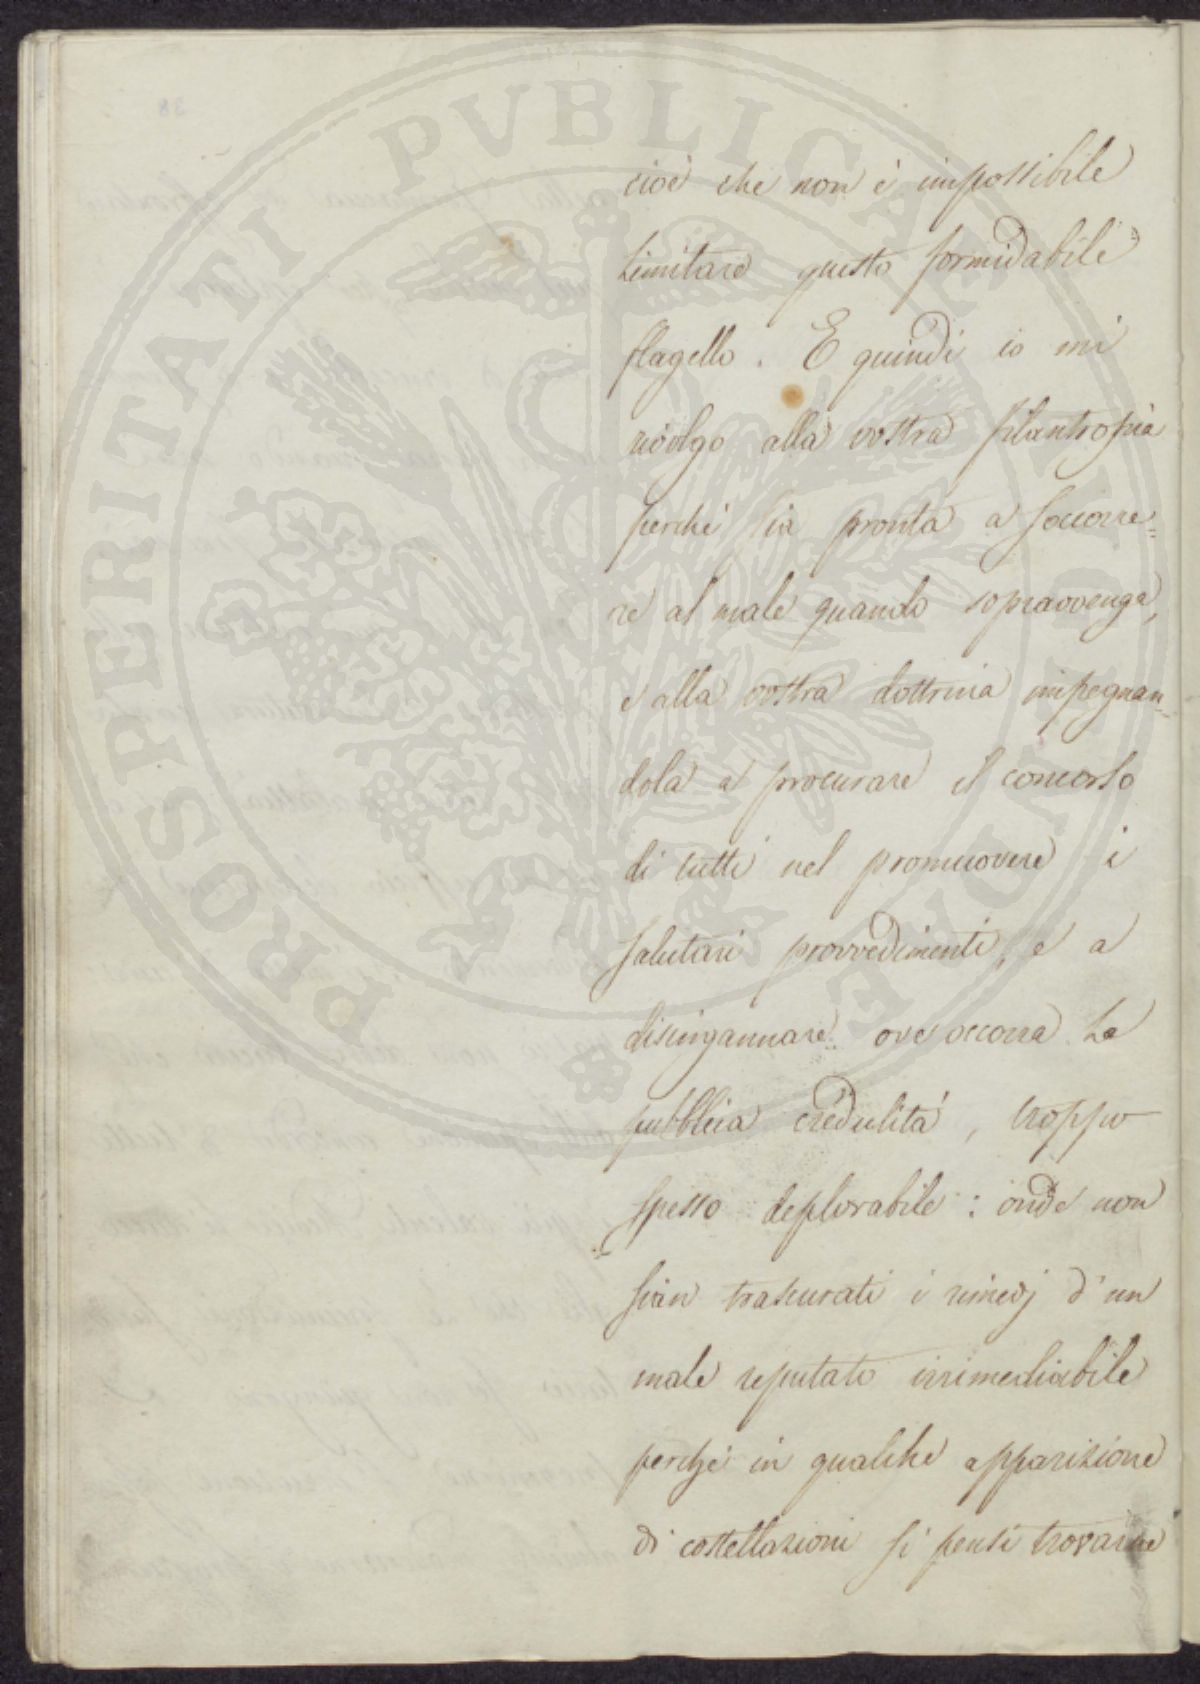 cioè che non è impossibile
limitare questo formidabile
flagello. E quindi io mi
rivolgo alla vostra filantropia
perchè sia pronta a soccorre=
re al male quando sopravvenga,
e alla vostra dottrina impegnan=
dola a procurare il concorso
di tutti nel promuovere i
salutari provvedimenti, e a
disingannare ove occorra la
pubblica credulità, troppo
spesso deplorabile: onde non
sian trascurati i rimedj d'un
male reputato irrimediabile
perchè in qualche apparizione
di costellazioni si pensi trovarne
PROSPERITATI PVBLICAE